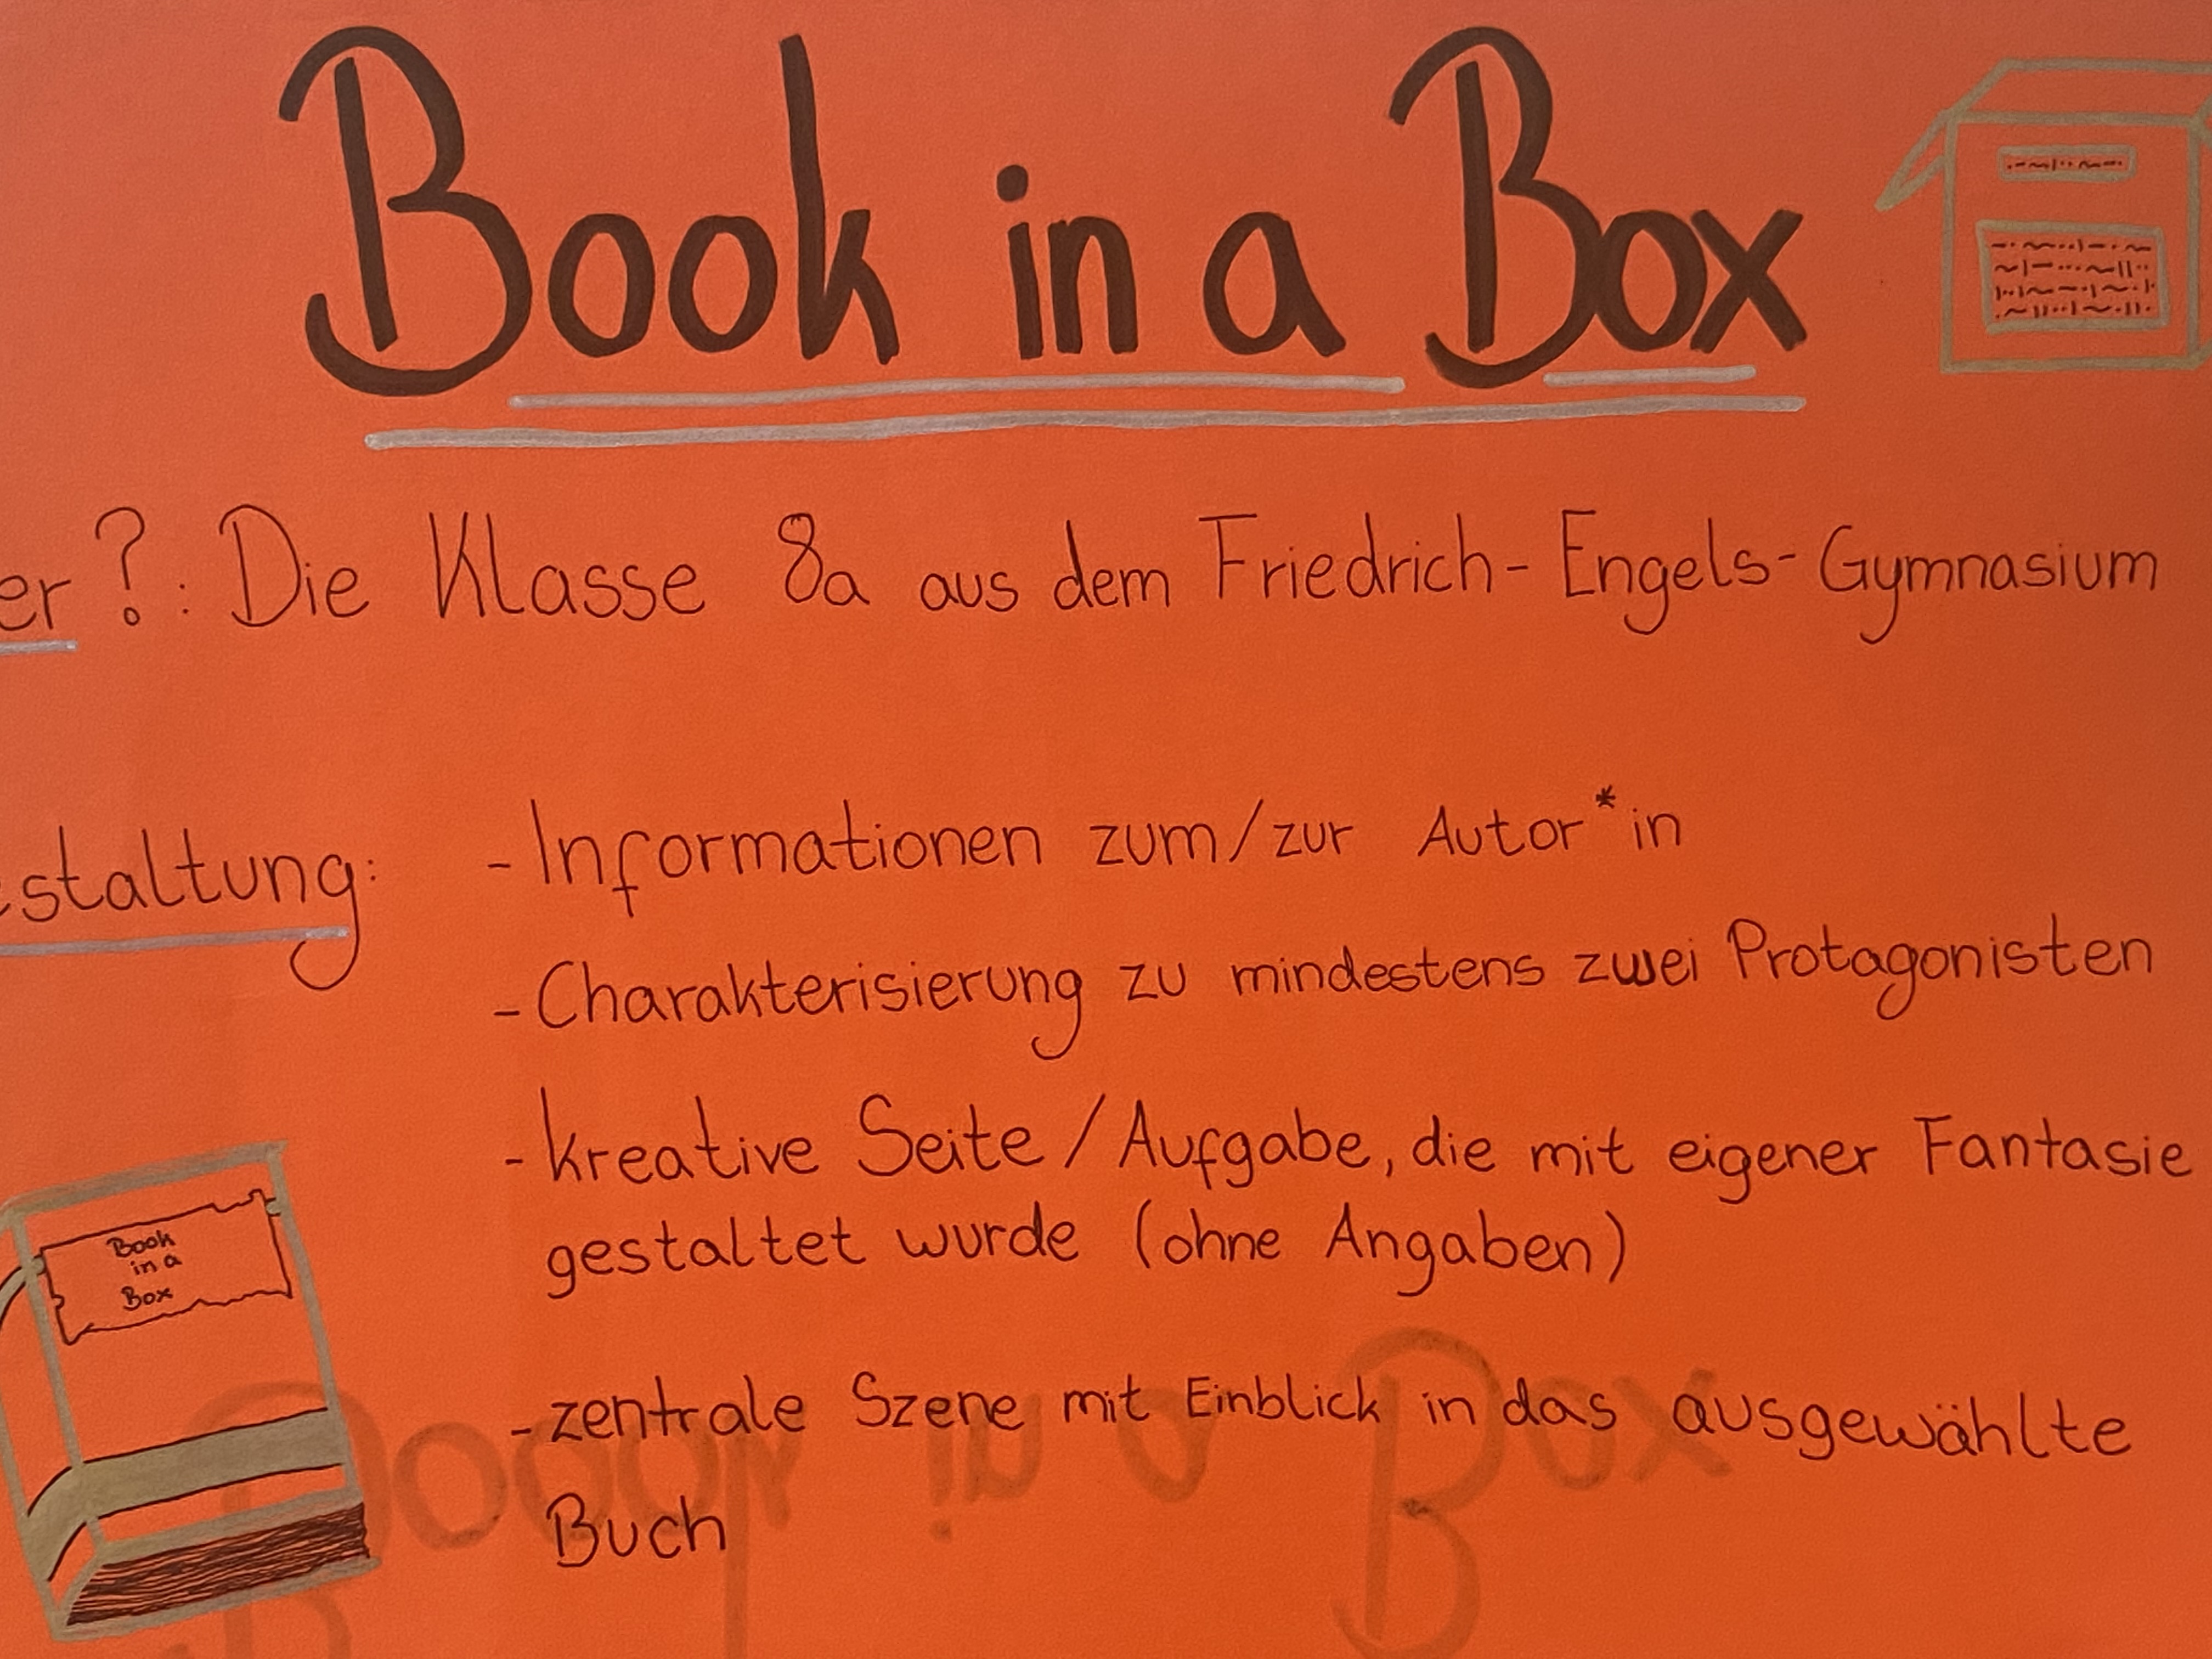 Book in a Box
er?: Die Klasse 8a aus dem Friedrich-Engels-Gymnasium
estaltung: - Informationen zum/zur Autor*in
- Charakterisierung zu mindestens zwei Protagonisten
- kreative Seite / Aufgabe, die mit eigener Fantasie
gestaltet wurde (ohne Angaben)
- zentrale Szene mit Einblick in das ausgewählte
Buch
Book
in a
Box